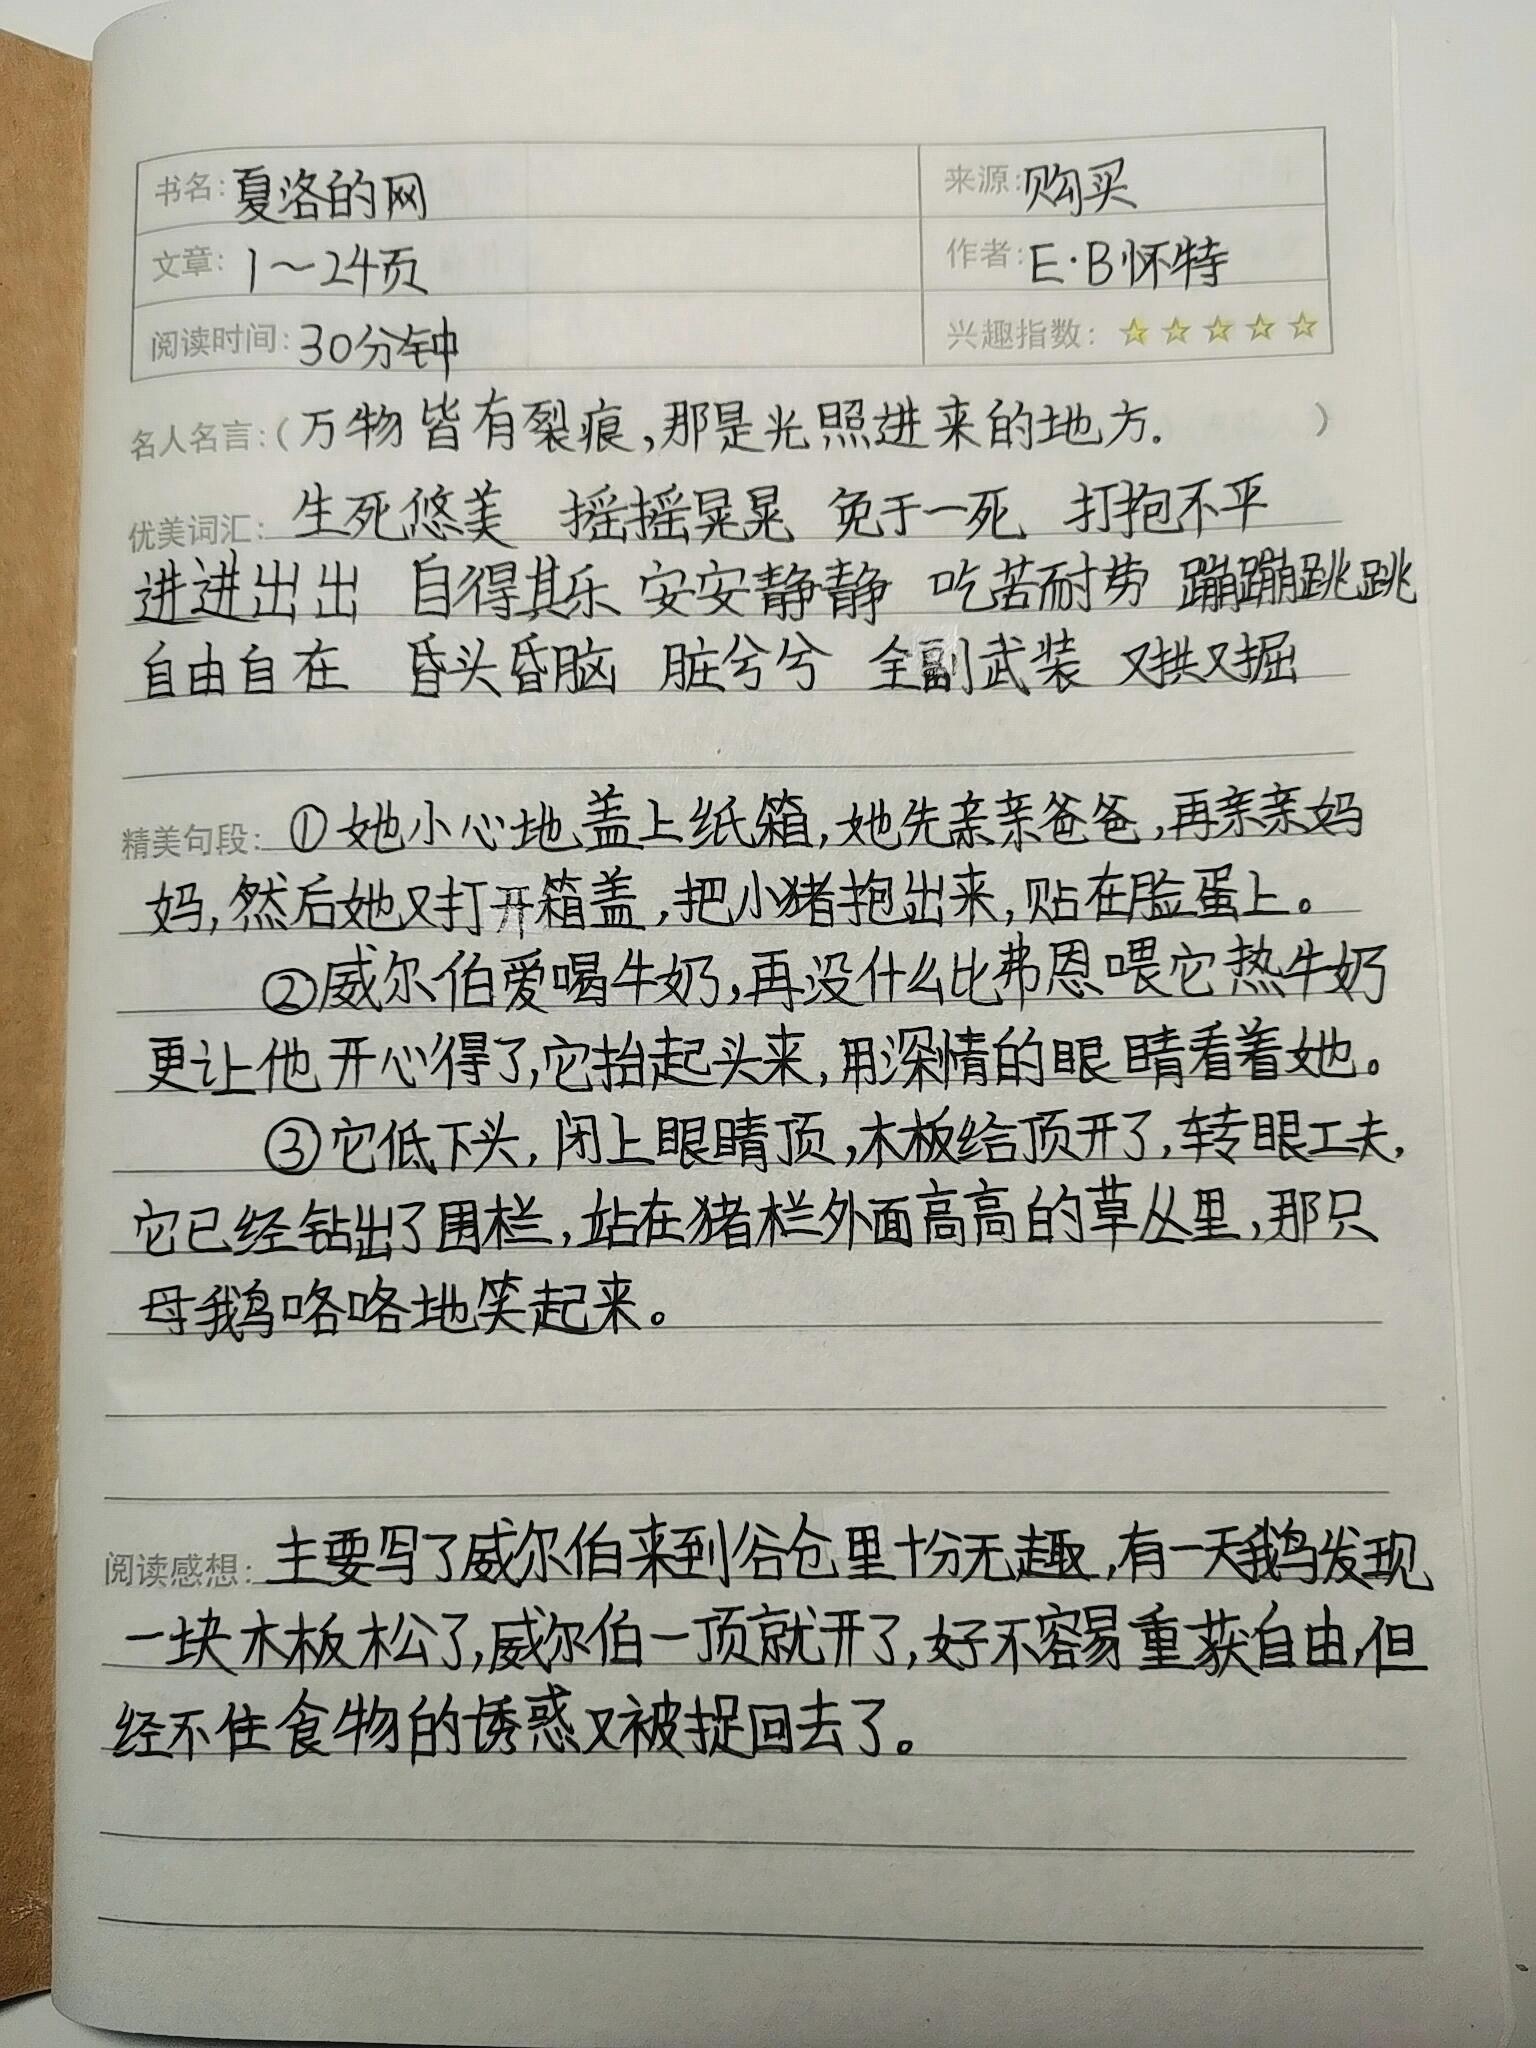 书名：夏洛的网 来源：购买
文章：1～24页 作者：E·B怀特
阅读时间：30分钟 兴趣指数：☆☆☆☆☆
名人名言：（万物皆有裂痕，那是光照进来的地方. ）
优美词汇：生死悠美 摇摇晃晃 免于一死 打抱不平
进进出出 自得其乐 安安静静 吃苦耐劳 蹦蹦跳跳
自由自在 昏头昏脑 脏兮兮 全副武装 又拱又掘
精美句段：①她小心地盖上纸箱，她先亲亲爸爸，再亲亲妈
妈，然后她又打开箱盖，把小猪抱出来，贴在脸蛋上。
②威尔伯爱喝牛奶，再没什么比弗恩喂它热牛奶
更让他开心得了，它抬起头来，用深情的眼睛看着她。
③它低下头，闭上眼睛顶，木板给顶开了，转眼工夫，
它已经钻出了围栏，站在猪栏外面高高的草丛里，那只
母鹅咯咯地笑起来。
阅读感想：主要写了威尔伯来到谷仓里十分无趣，有一天鹅发现
一块木板松了，威尔伯一顶就开了，好不容易重获自由，但
经不住食物的诱惑又被捉回去了。